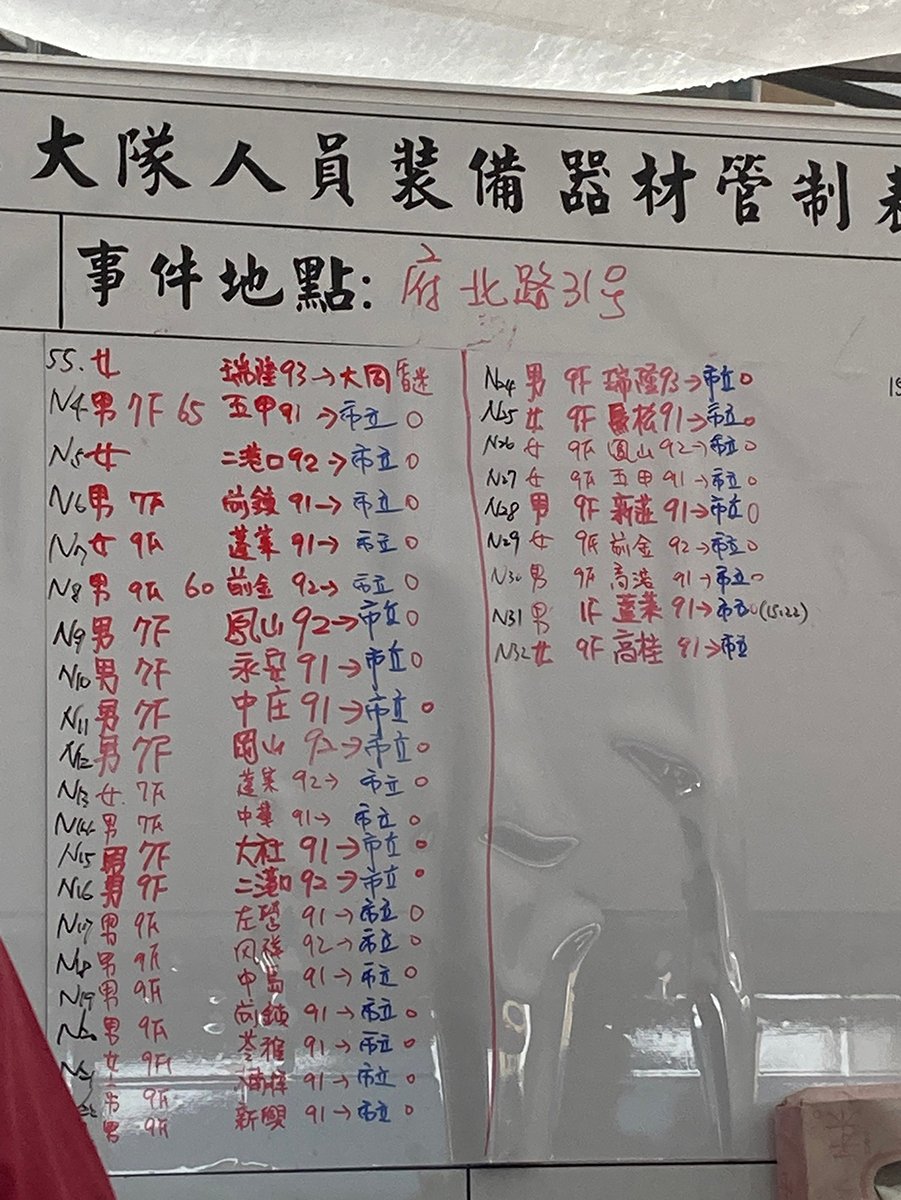 大隊人員裝備器材管制表
事件地點: 府北路31号
55. 女 瑞隆93→大同
N4 男 7F 65 五甲91→市立○
N5 女 二港口92→市立○
N6 男 7F 前鎮91→市立○
N7 女 9F 蓬萊91→市立○
N8 男 9F 60 前金92→市立○
N9 男 7F 鳳山92→市立○
N10 男 7F 永安91→市立○
N11 男 7F 中庄91→市立○
N12 男 7F 岡山92→市立○
N13 女 7F 蓬萊92→市立○
N14 男 7F 中華91→市立○
N15 男 7F 大社91→市立○
N16 男 9F 二港口92→市立○
N17 男 9F 左營91→市立○
N18 男 9F 鳳祥92→市立○
N19 男 9F 中島91→市立○
男 9F 前鎮91→市立○
女 9F 苓雅91→市立○
9F 楠梓91→市立○
男 9F 新興91→市立○
N24 男 9F 瑞隆93→市立○
N25 女 9F 91→市立○
N26 女 9F 鳳山92→市立○
N27 女 9F 五甲91→市立○
N28 男 9F 新莊91→市立○
N29 女 9F 前金92→市立○
N30 男 9F 91→市立○
N31 男 1F 蓬萊91→市立○(15:22)
N32 女 9F 高桂91→市立